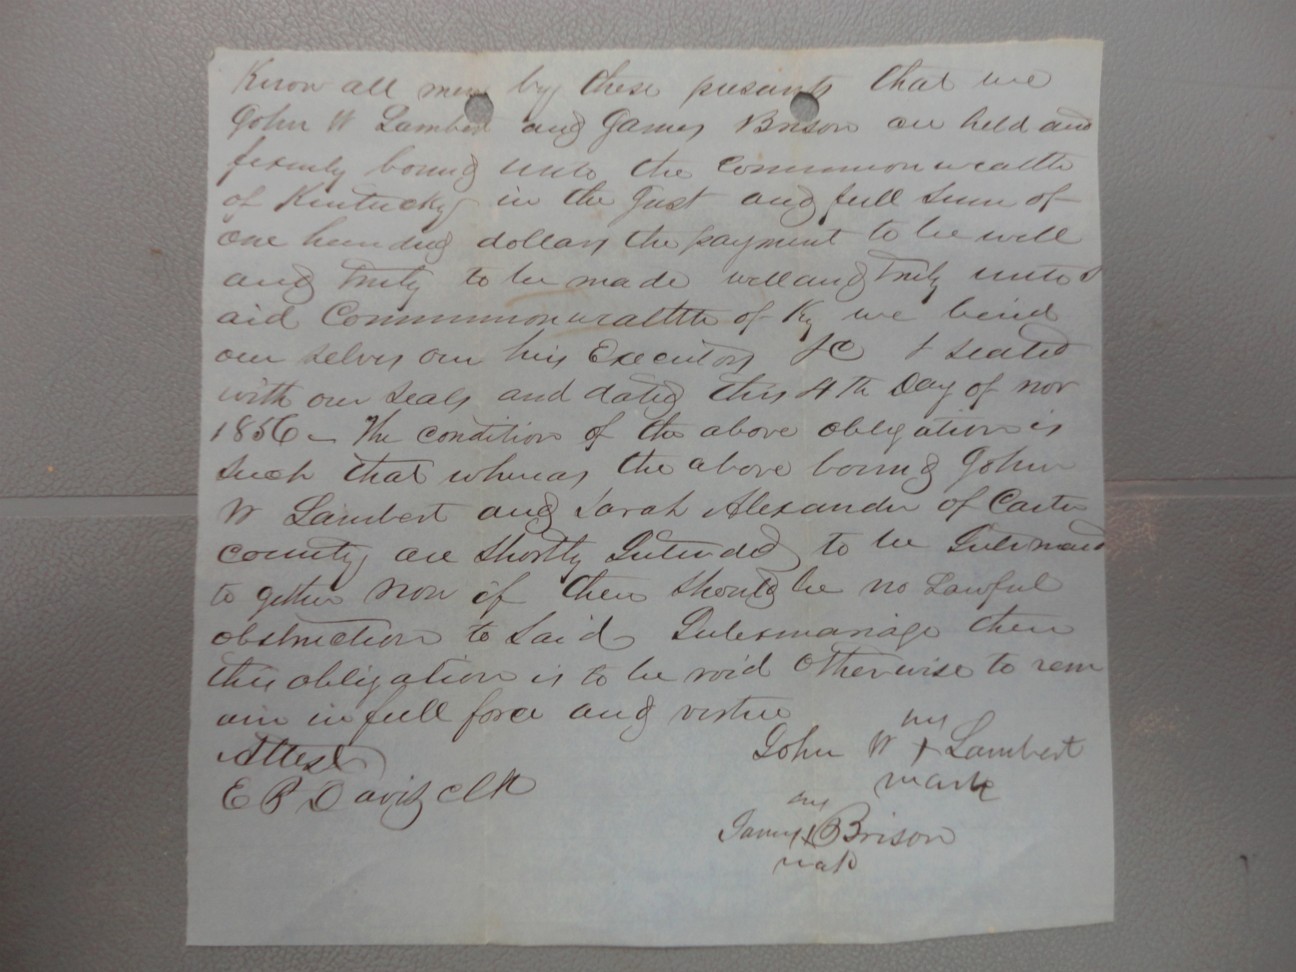 Know all men by these presants that we
John W Lambert and James Brison are held and
firmly bound unto the Commonwealth
of Kentucky in the Just and full Sum of
one hundred dollars the payment to be well
and truly to be made well and truly unto s
aid Commonwealth of Ky we bind
our selves our hirs Executors &c & seated
with our seals and dated this 4th Day of nov
1856 - The condition of the above obligation is
Such that whereas the above bound John
W Lambert and Sarah Alexander of Carter
county are Shortly Intended to be Intermarid
to gether Now if there should be no Lawful
obstruction to Said Intermariage then
this obligation is to be void Otherwise to rem
ain in full force and virtue
Attest
E P Davis clk
his
John W + Lambert
mark
his
James + Brison
mark